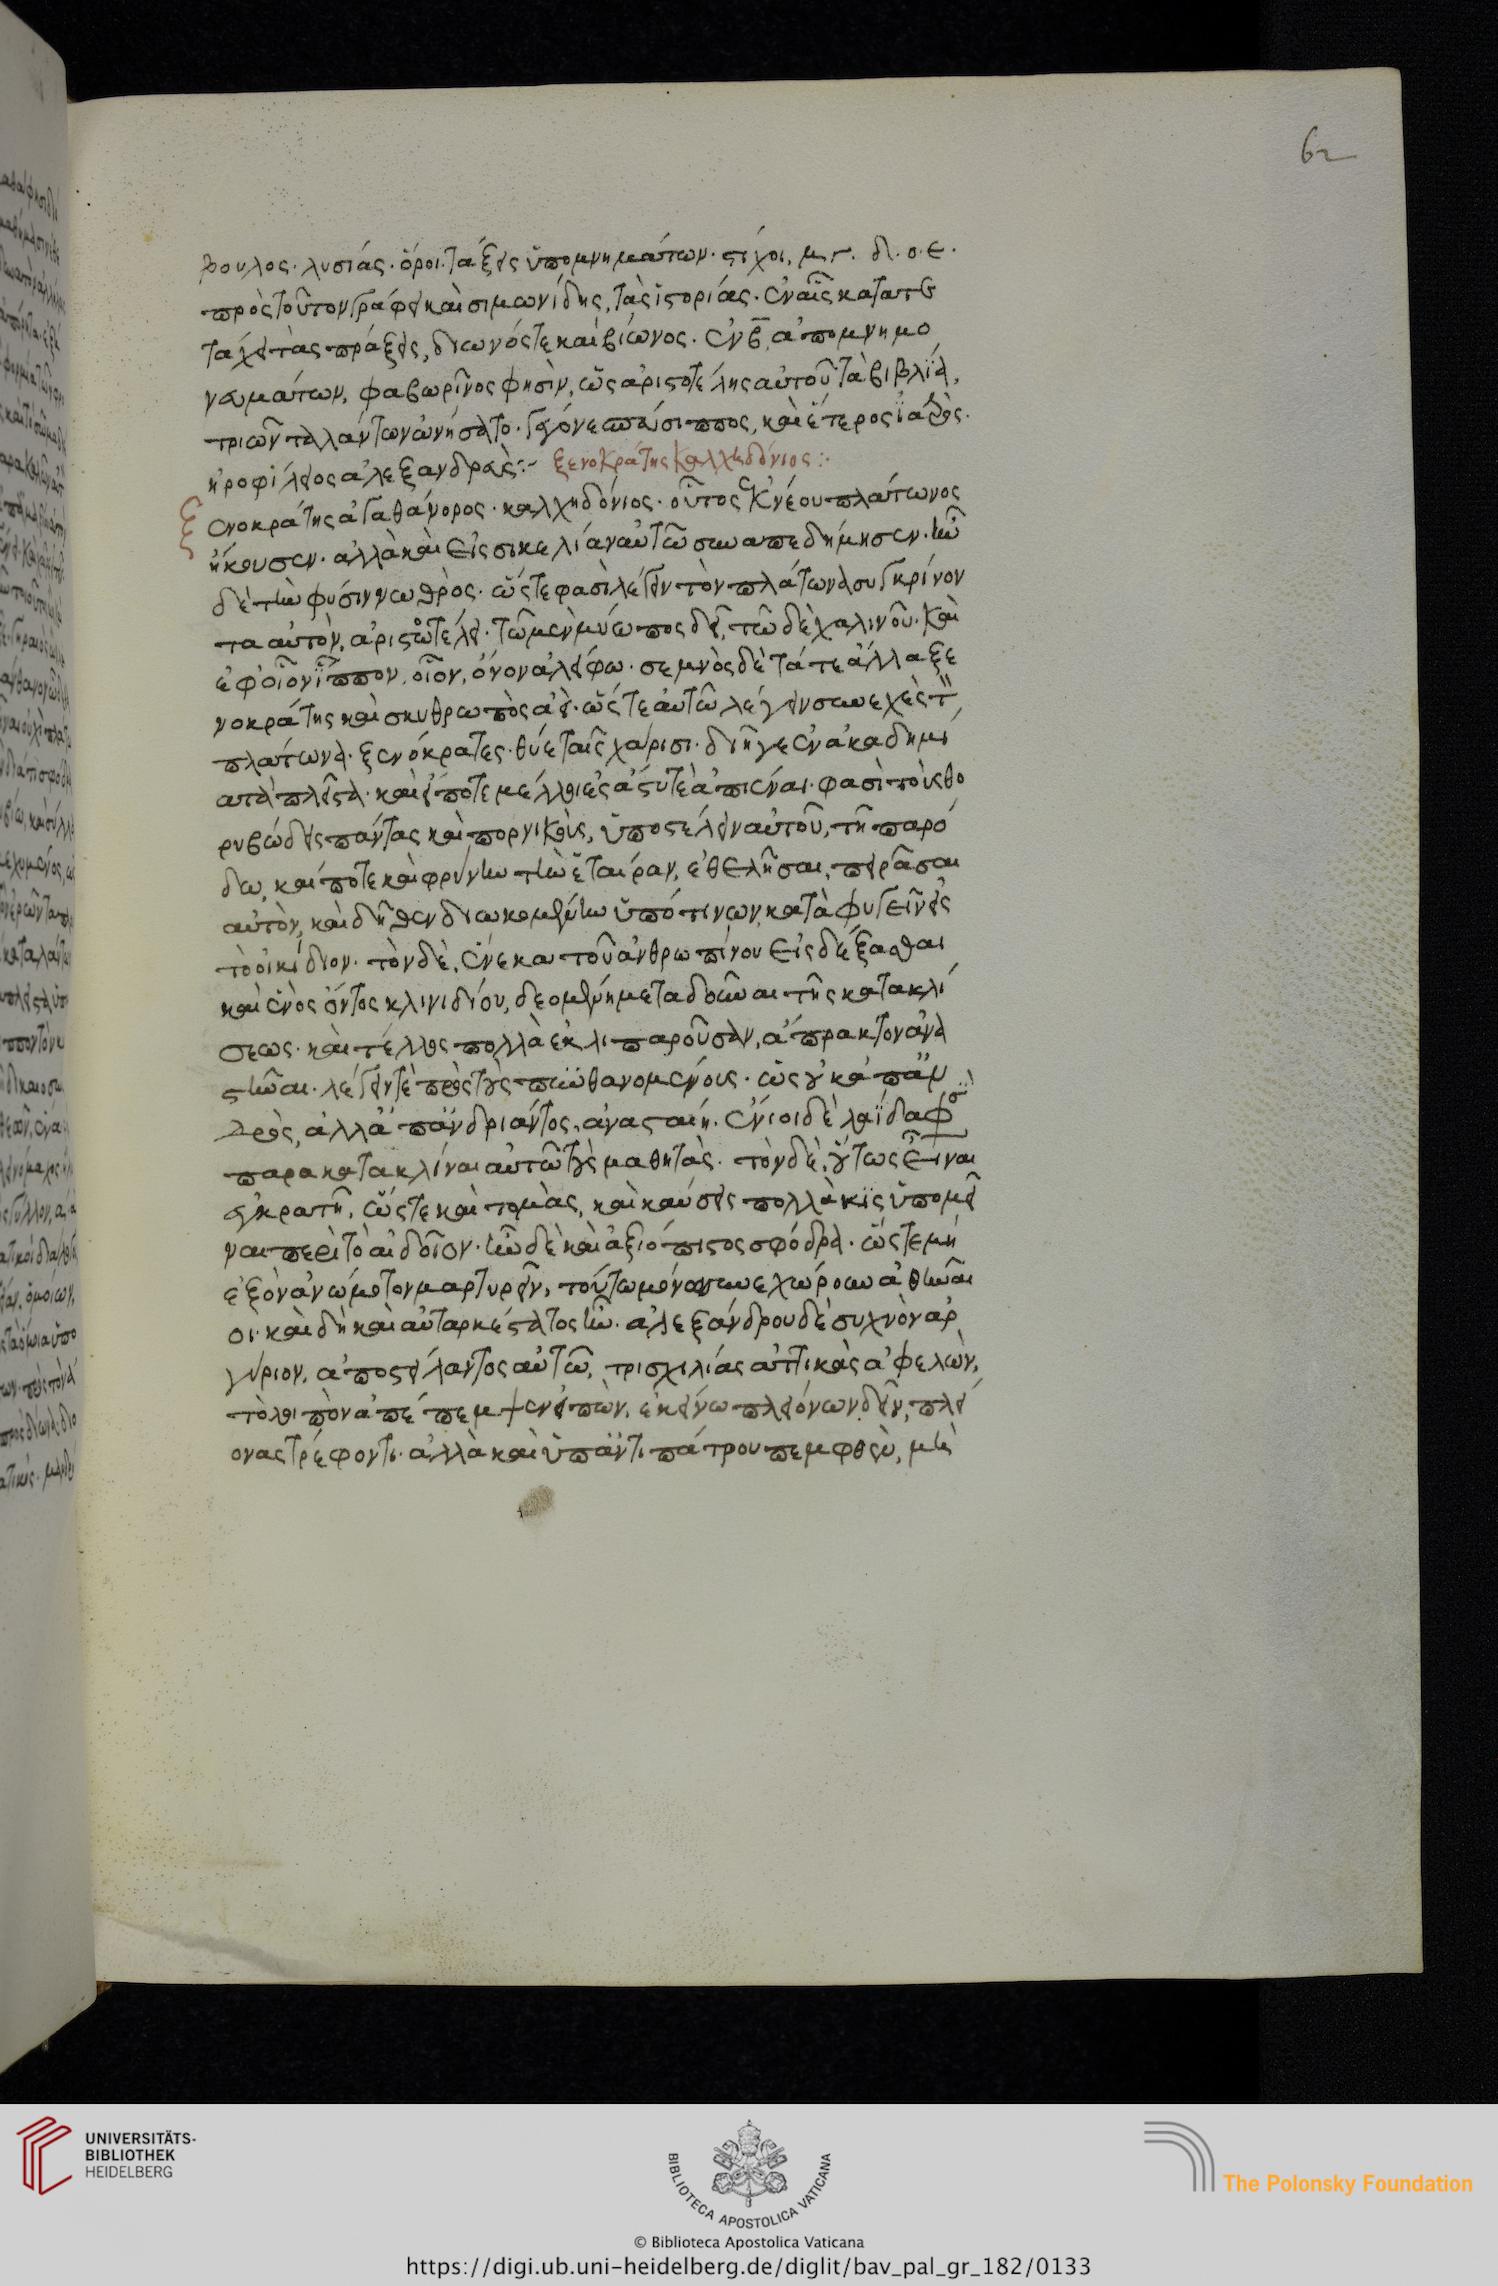 62
βουλος· λυσίας· ὅροι· τάξεις ὑπομνημάτων· στίχοι, μ. γ. δ. σ. ε.
πρὸς τοῦτον γράφει καὶ σιμωνίδης, τὰς ἱστορίας· ἐν αἷς κατατέ
ταχει τὰς πράξεις, διωνός τε καὶ βίωνος· ἐν β, ἀπομνημο
νευμάτων, φαβωρῖνος φησὶν, ὡς ἀριστοτέλης αὐτοῦ τὰ βιβλία,
τριῶν ταλάντων ὠνήσατο· γέγονε σπεύσιππος, καὶ ἕτερος ἰατρὸς·
ἡροφίλειος ἀλεξανδρεὺς :~ ξενοκράτης καλχηδόνιος :·
ξενοκράτης ἀγαθάνορος· καλχηδόνιος· οὗτος ἐκ νέου πλάτωνος
ἤκουσεν· ἀλλὰ καὶ εἰς σικελίαν αὐτῶ συναπεδήμησεν· ἦν
δὲ τὴν φύσιν νωθρὸς· ὥς τε φασὶ λέγειν τὸν πλάτωνα συγκρίνον
τα αὐτὸν, ἀριστοτέλει· τῶ μὲν μύωπος δεῖ, τῶ δὲ χαλινοῦ· καὶ
ἐφ οἷον ἵππον, οἷον, ὄνον ἀλείφω· σεμνὸς δὲ τά τε ἄλλα ξε
νοκράτης καὶ σκυθρωπὸς ἀεὶ· ὥς τε αὐτῶ λέγειν συνεχὲς τ
πλάτωνα· ξενόκρατες· θύε ταῖς χάρισι· διῆγε ἐν ἀκαδημί
α τὰ πλεῖστα· καὶ εἴποτε μέλλοι ἐς ἄστυ τὲ ἀπιέναι· φασὶ τοὺς θο
ρυβώδεις πάντας καὶ πορνικοὺς, ὑποστέλειν αὐτοῦ, τῆ παρό
δω, καί ποτε καὶ φρύνην τὴν ἑταίραν, ἐθελῆσαι, πειρᾶσαι
αὐτὸν, καὶ δῆθεν διωκομένην ὑπό τινων, καταφυγεῖν εἰς
τὸ οἰκίδιον· τὸν δὲ, ἕνεκα τοῦ ἀνθρωπίνου εἰσδέξασθαι
καὶ ἑνὸς ὄντος κλινιδίου, δεομένη μεταδοῦναι τῆς κατακλί
σεως· καὶ τέλλος πολλὰ ἐκλιπαροῦσαν, ἄπρακτον ἀνα
στῆναι· λέγειν τὲ πρὸς τοὺς πυνθανομένους· ὡς οὐκ ἀπ ἀν
δρὸς, ἀλλ ἀπ ἀνδριάντος, ἀνασταίη· ἔνιοι δὲ λαΐδα φ
παρακατακλίναι αὐτῶ τοὺς μαθητάς· τὸν δὲ, οὕτως εἶναι
ἐγκρατῆ, ὥς τε καὶ τομὰς, καὶ καύσεις πολλάκις ὑπομεῖ
ναι περὶ τὸ αἰδοῖον· ἦν δὲ καὶ ἀξιόπιστος σφόδρα· ὥς τε μὴ
ἐξὸν ἀνώμοτον μαρτυρεῖν, τούτω μόνω συνεχώρουν ἀθηναῖ
οι· καὶ δὴ καὶ αὐταρκέστατος ἦν· ἀλεξάνδρου δὲ συχνὸν ἀρ
γύριον, ἀποστείλαντος αὐτῶ, τρισχιλίας ἀττικὰς ἀφελὼν,
τὸ λοιπὸν ἀπέπεμψεν εἰπὼν, ἐκείνω πλειόνων δεῖν, πλεί
ονας τρέφοντι· ἀλλὰ καὶ ὑπ ἀντιπάτρου πεμφθὲν, μὴ
UNIVERSITÄTS-
BIBLIOTHEK
HEIDELBERG
BIBLIOTECA APOSTOLICA VATICANA
The Polonsky Foundation
© Biblioteca Apostolica Vaticana
https://digi.ub.uni-heidelberg.de/diglit/bav_pal_gr_182/0133